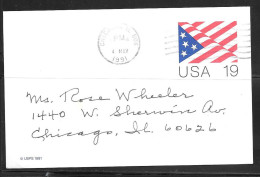 1991
USA 19
Ms. Rose Wheeler
1440 W. Sherwin Av.
Chicago, Il. 60626
© USPS 1991